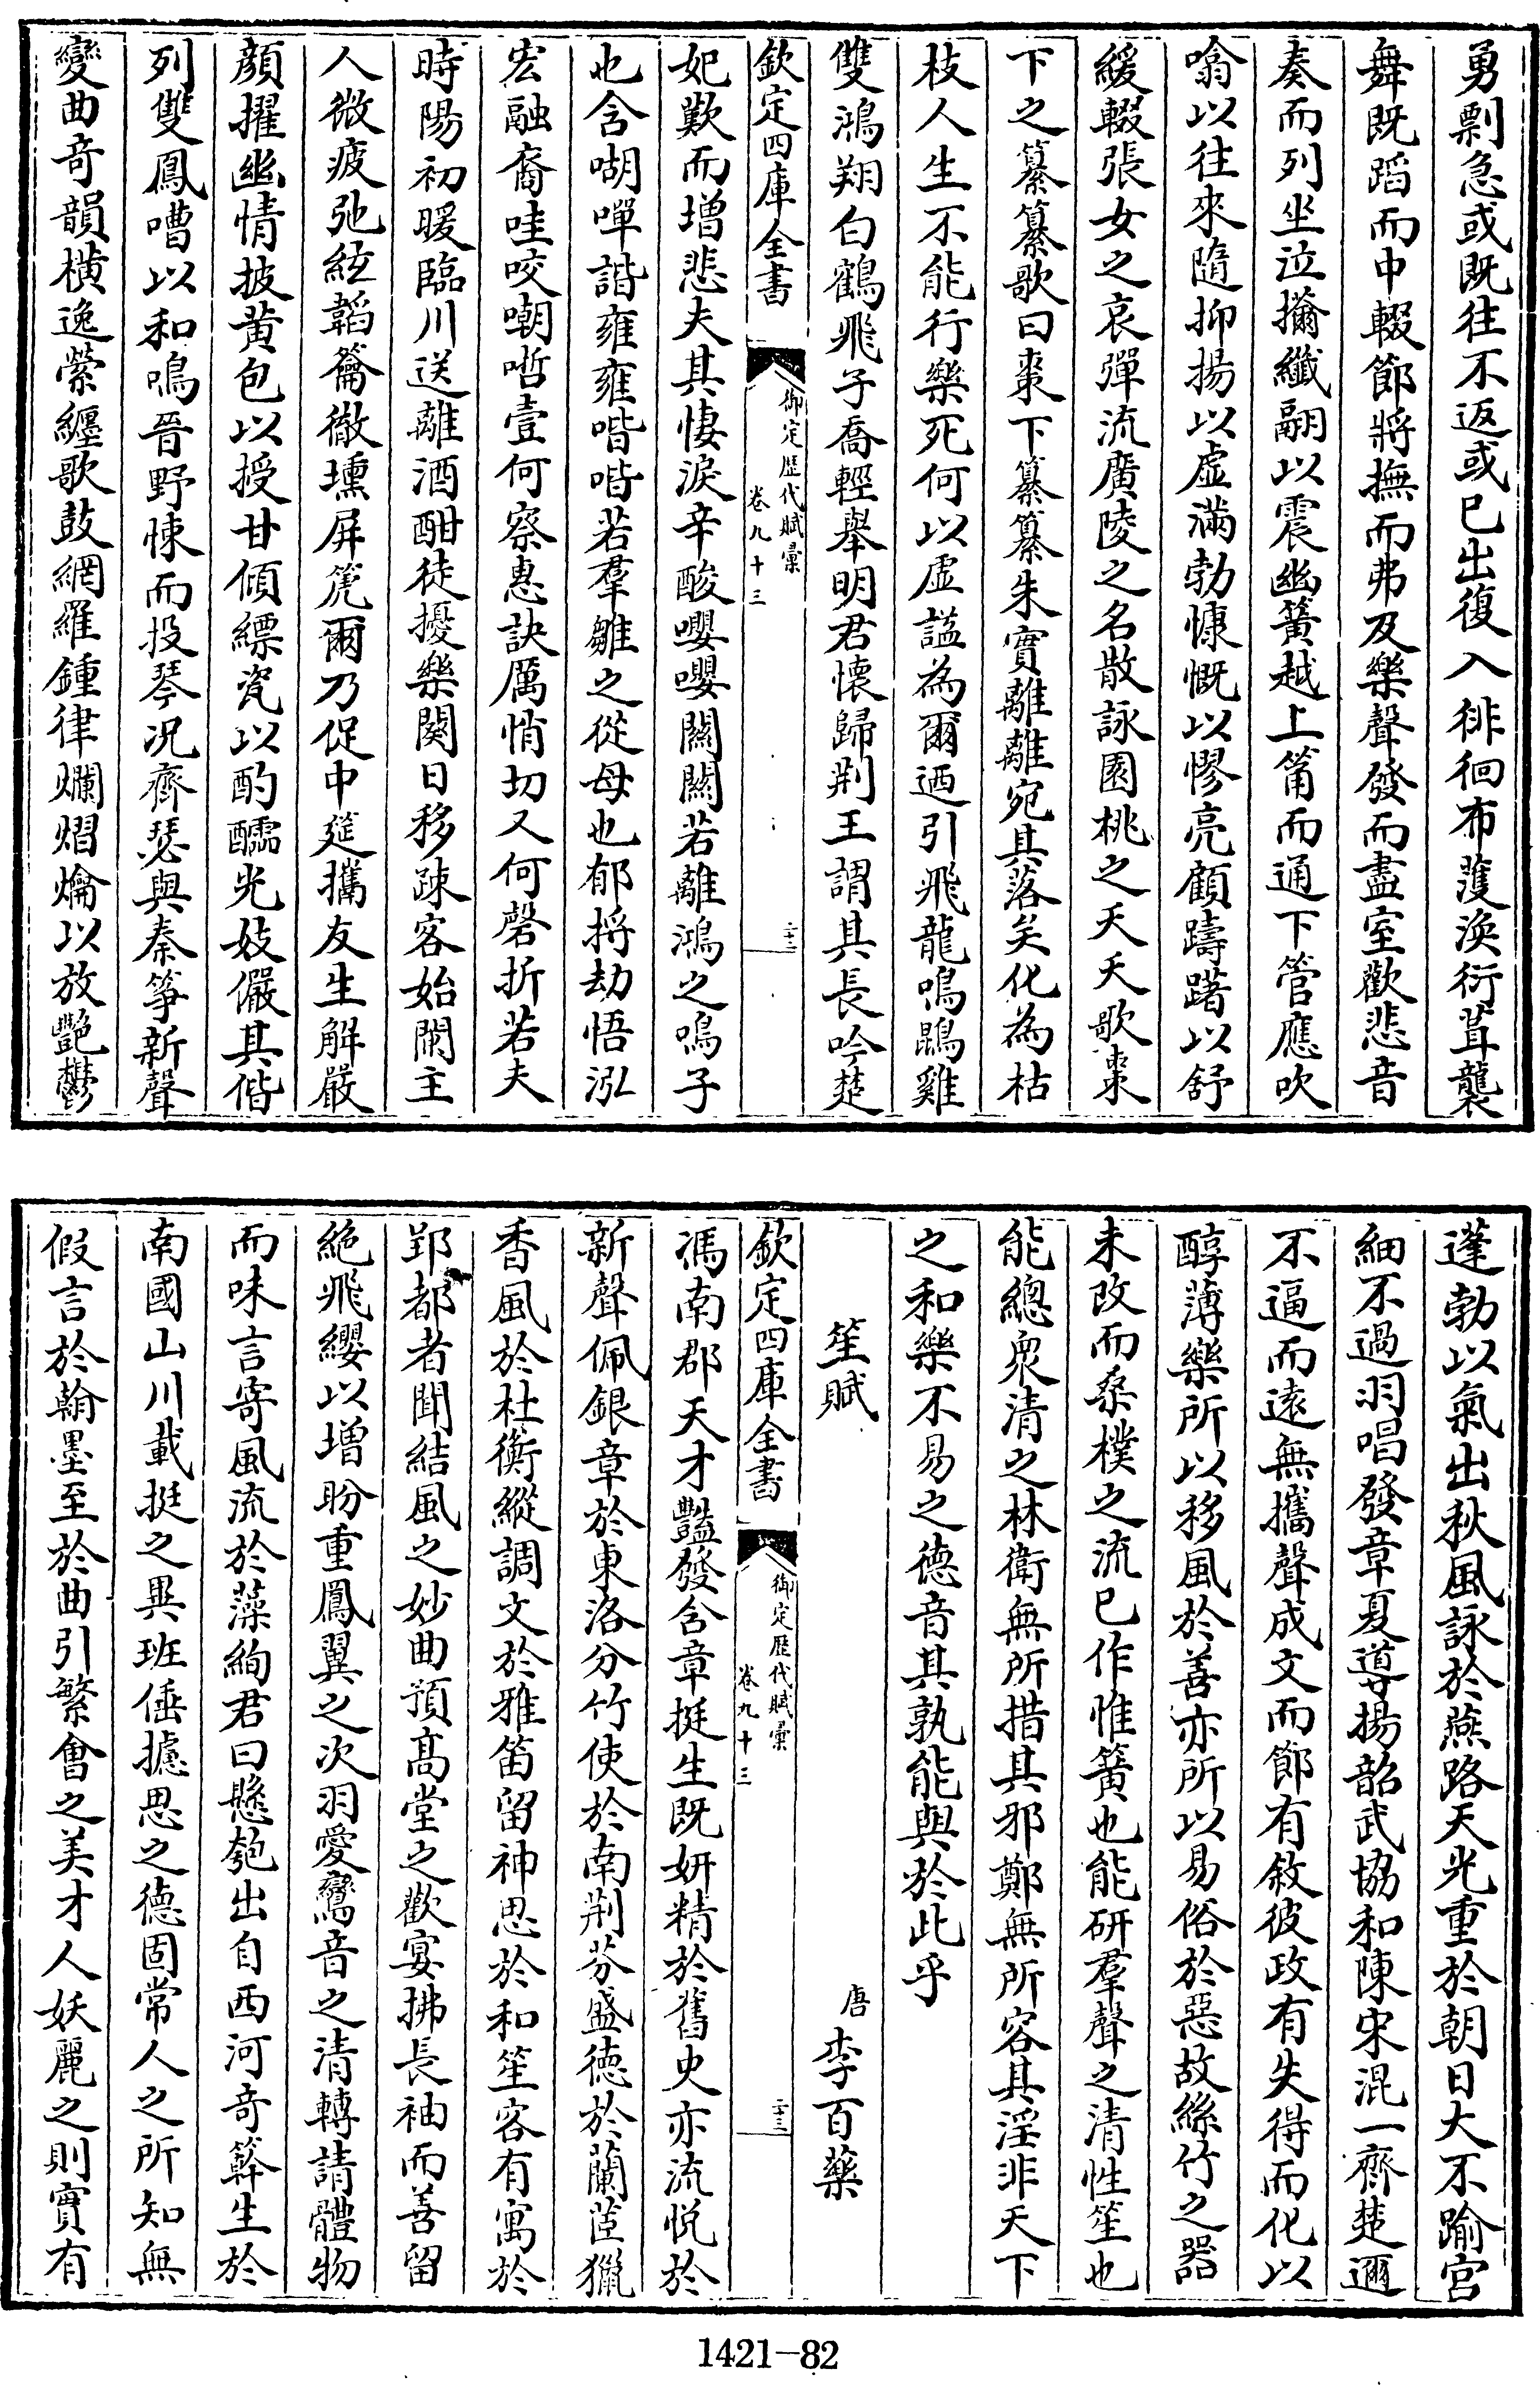 勇剽急或既往不返或已出復入徘徊布濩渙衍葺襲
舞既蹈而中輟節將撫而弗及樂聲發而盡室歡悲音
奏而列坐泣擫纖翮以震幽簧越上筩而通下管應吹
噏以往來隨抑揚以虚滿勃慷慨以憀亮顧躊躇以舒
緩輟張女之哀彈流廣陵之名散詠園桃之夭夭歌棗
下之纂纂歌曰棗下纂纂朱實離離宛其落矣化為枯
枝人生不能行樂死何以虚謚為爾迺引飛龍鳴鵾雞
雙鴻翔白鶴飛子喬輕舉明君懷歸荆王謂其長吟楚
欽定四庫全書
御定歷代賦彙
卷九十三
二十二
妃歎而增悲夫其悽淚辛酸嚶嚶關關若離鴻之鳴子
也含㗅嘽諧雍雍喈喈若羣雛之從母也郁捋劫悟泓
宏融裔哇咬嘲哳壹何察惠訣厲悄切又何磬折若夫
時陽初暖臨川送離酒酣徒擾樂闋日移踈客始闌主
人微疲弛絃韜籥徹壎屏箎爾乃促中筵攜友生解嚴
顔擢幽情披黄包以授甘傾縹瓷以酌醽光妓儼其偕
列雙鳳嘈以和鳴晉野悚而投琴况齊瑟與秦箏新聲
變曲竒韻横逸縈纏歌鼓網羅鍾律爛熠爚以放艶鬱
蓬勃以氣出秋風詠於燕路天光重於朝日大不踰宫
細不過羽唱發章夏導揚韶武協和陳宋混一齊楚邇
不逼而逺無攜聲成文而節有敘彼政有失得而化以
醇薄樂所以移風於善亦所以易俗於惡故絲竹之器
未改而桑樸之流已作惟簧也能研羣聲之清性笙也
能總衆清之林衛無所措其邪鄭無所容其淫非天下
之和樂不易之徳音其孰能與於此乎
笙賦
唐 李百藥
欽定四庫全書
御定歷代賦彙
卷九十三
二十三
馮南郡天才豔發含章挺生既妍精於舊史亦流悦於
新聲佩銀章於東洛分竹使於南荆芬盛徳於蘭茝獵
香風於杜衡縱調文於雅笛留神思於和笙客有寓於
郢都者聞結風之妙曲預髙堂之歡宴拂長袖而善留
絶飛纓以増盼重鳳翼之次羽愛鸞音之清轉請體物
而味言寄風流於藻絢君曰懸匏出自西河竒簳生於
南國山川載挺之異班倕攄思之徳固常人之所知無
假言於翰墨至於曲引繁㑹之美才人妖麗之則實有
1421—82